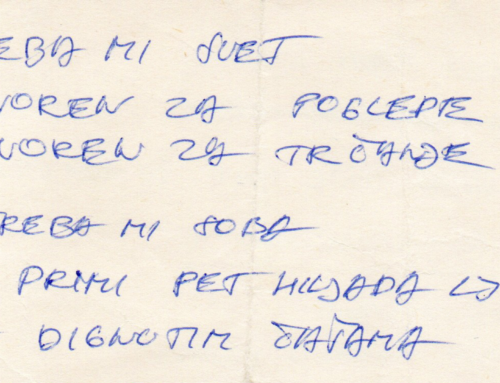 EBA MI SVET
VOREN ZA POGLEDE
VOREN ZA TRČANJE
REBA MI SOBA
PRIMI PET HILJADA LJ
DIGNUTIM ČAŠAMA